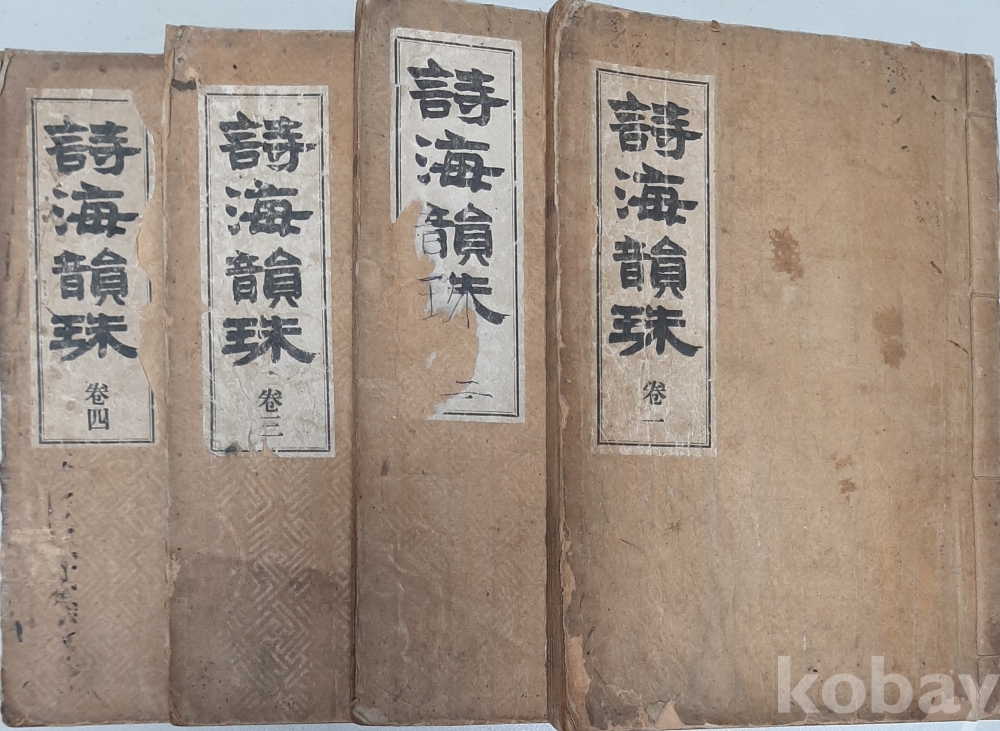 詩海韻珠
卷一
詩海韻珠
二
詩海韻珠
卷三
詩海韻珠
卷四
kobay